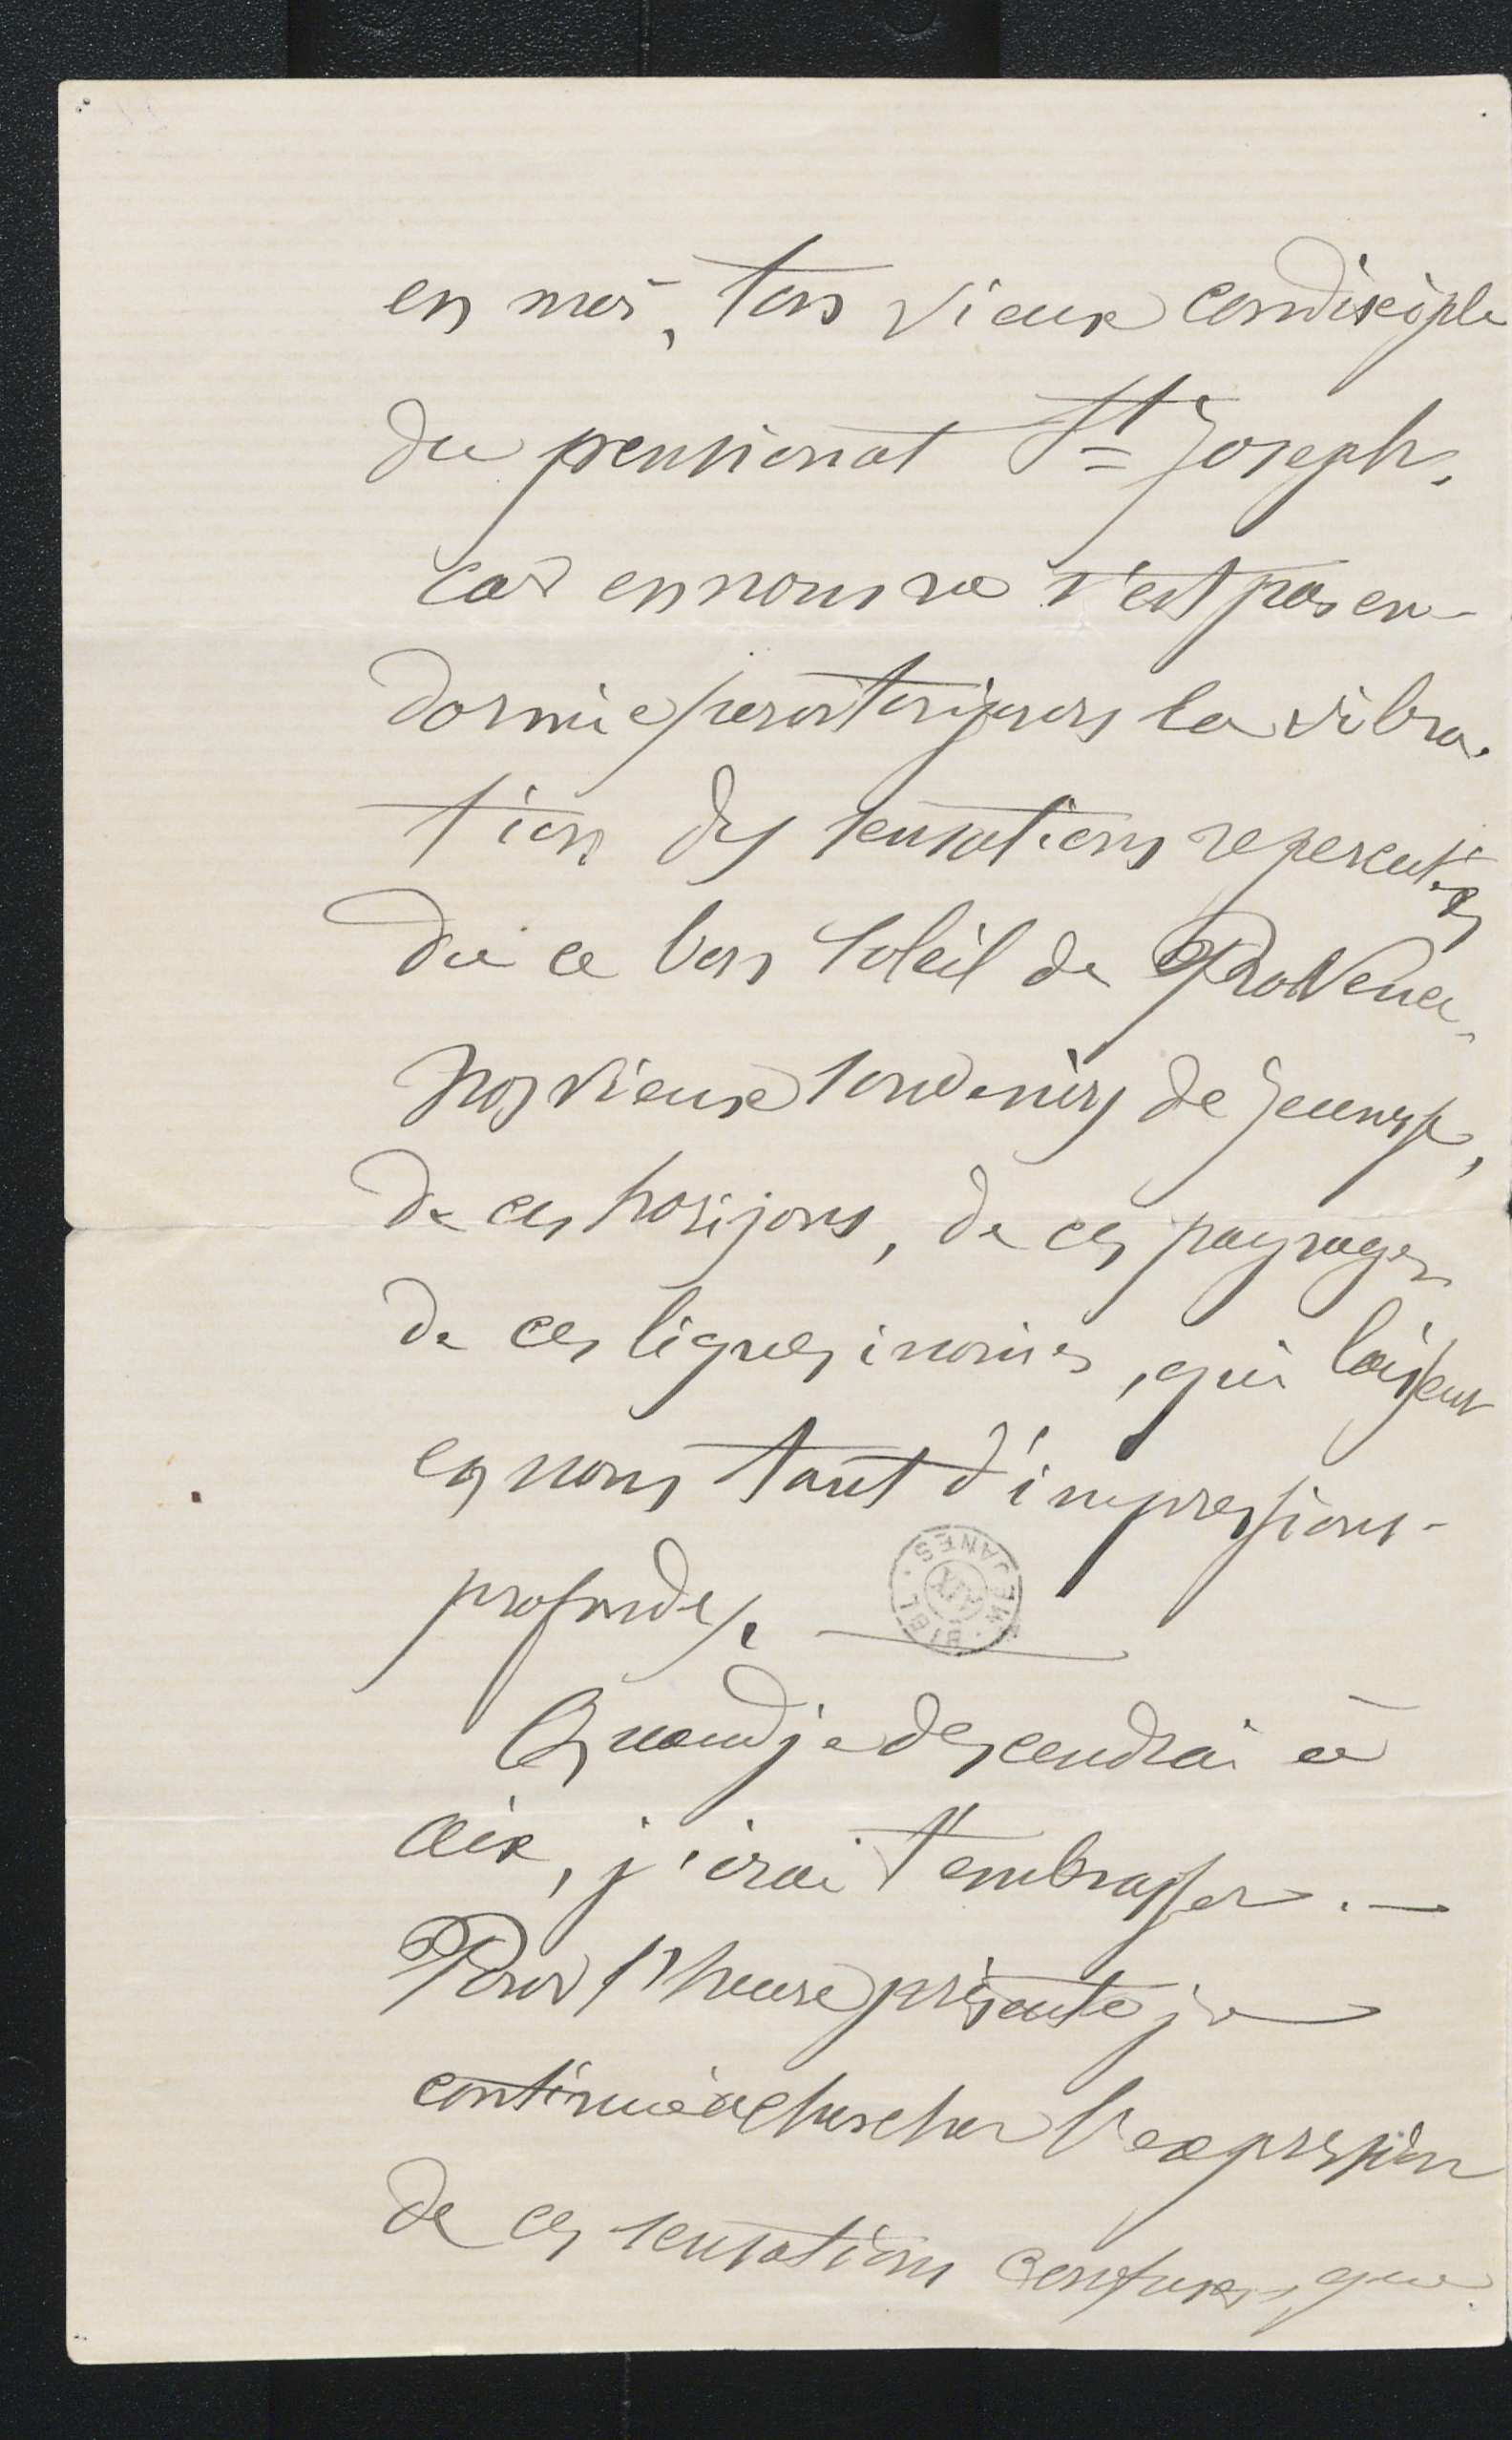 en moi, ton vieux condisciple
du pensionat St Joseph,
car en nous ne s'est pas en-
dormie pour toujours la vibra-
tion des sensations repercutées
du ce bon soleil de Provence,
nos vieux souvenirs de jeunesse,
de ces horizons, de ces paysages
de ces lignes inouies, qui laissent
en nous tant d'impressions
profondes.
BIBL. MEJANES AIX
Quand je descendrai à
Aix, j'irai t'embrasser. —
Pour l'heure présente je
continue à chercher l'expression
de ces sensations confuses, que